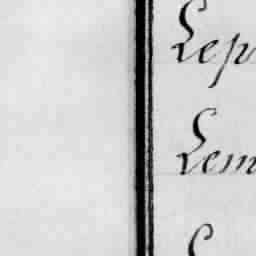 Lep
Lem